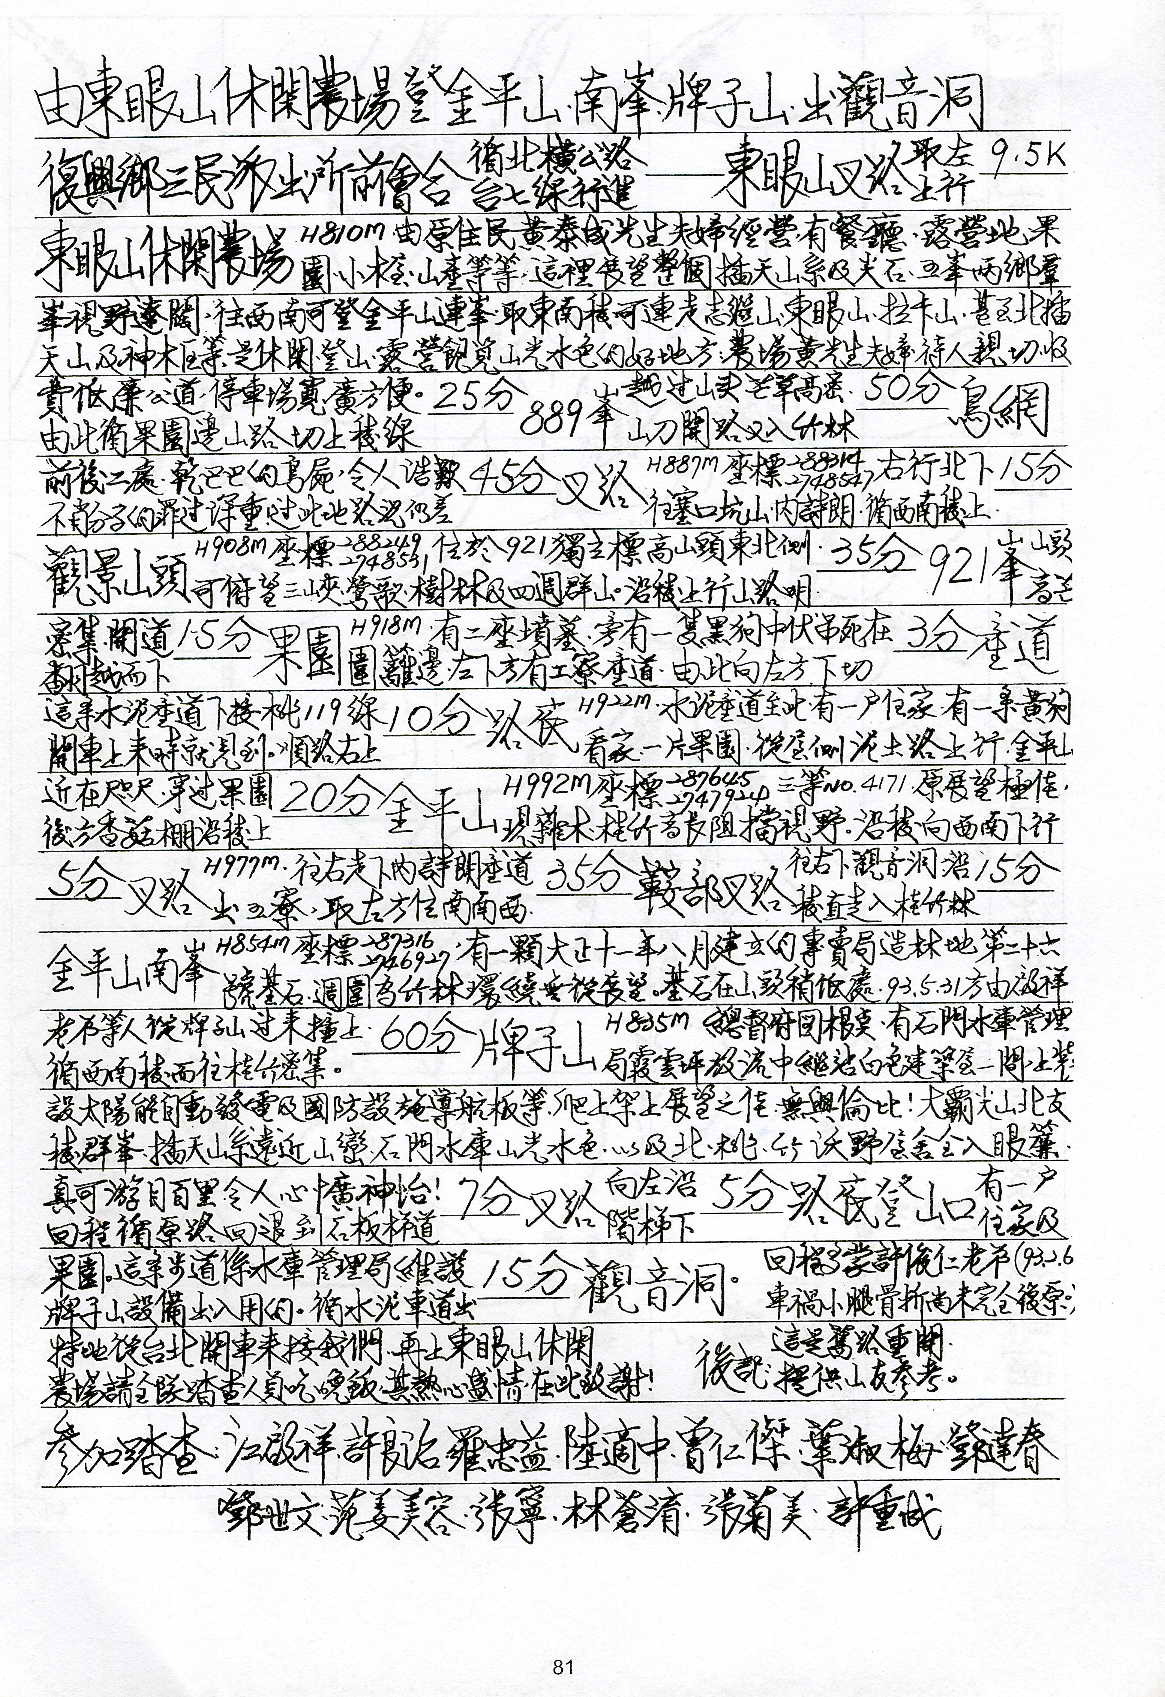 由東眼山休閒農場登金平山·南峯·牌子山·出觀音洞
復興鄉三民派出所前會合 循北橫公路台七線行進 —— 東眼山叉路 取左上行 9.5K
東眼山休閒農場 H810M·由原住民黃泰成先生夫婦經營·有餐廳·露營地·果
園·小木屋·山產等等·這裡展望整個插天山系及尖石·五峯兩鄉羣
峯視野遼闊·往西南可登金平山連峯·取東南稜可連走志繼山·東眼山·拉卡山·甚至北插
天山及神木區等·是休閒·登山·露營飽覽山光水色的好地方·農場黃先生夫婦待人親切·收
費低廉公道·停車場寬廣方便。 25分 889峯 越过山尖芒草高密 50分 鳥網
由此循果園邊山路切上稜線 山刀開路又入竹林
前後二處·乾巴巴的鳥屍·令人浩歎 45分 叉路 H887M 座標288314 2748547 右行北下 15分
不肖份子的罪过深重!过此地路況仍差 往塞口坑山·內詩朗·循西南稜上·
觀景山頭 H908M 座標288249 2748531 位於921獨立標高山頭東北側· 35分 921峯 山頭
可俯望三峽·鶯歌·樹林及四週群山·沿稜上行山路明· 高芒
密集開道 15分 果園 H918M·有二座墳墓·旁有一隻黑狗中伏吊死在 3分 產道
翻越而下 園籬邊·左下方有工寮產道·由此向左方下切
這条水泥產道下接桃119線 10分 路底 H922M·水泥產道至此·有一户住家·有一条黃狗
開車上来時就見到。順路右上 看家·一片果園·從屋側泥土路上行·金平山
近在咫尺·穿过果園 20分 金平山 H992M 座標287645 2747924 三等NO.4171·原展望極佳，
後方香菇棚沿稜上 現雜木·桂竹高長阻擋視野·沿稜向西南下行
5分 叉路 H977M·往右走下內詩朗產道 35分 鞍部叉路 往右下觀音洞沿 15分
出工寮，取左方往南南西 稜直走入桂竹林
金平山南峯 H854M 座標287316 2746927，有一顆大正十一年八月建立的專賣局造林地第二十六
號基石·週圍為竹林環繞無從展望。基石在山頭稍低處·93.5.31方由啟祥
老弟等人從牌子山过来撞上· 60分 牌子山 H835M 總督府図根点·有石門水庫管理
循西南稜而往桂竹密集。 局霞雲坪放流中繼站白色建築屋一間·上裝
設太陽能自動發電及國防設施導航板等·爬上架上展望之佳·無與倫比!大霸尖山北支
稜群峯·插天山系遠近山巒·石門水庫山光水色·以及北·桃·竹沃野屋舍全入眼簾·
真可游目百里令人心慵神怡! 7分 叉路 向左沿 5分 路底登山口 有一户
回程循原路回退到石板梯道 階梯下 住家及
果園。這条步道係水庫管理局維護 15分 觀音洞。 回程多蒙許俊仁老弟(93.2.6
牌子山設備出入用的。循水泥車道出 車禍小腿骨折尚未完全復原)
特地從台北開車来接我們·再上東眼山休閒 這是舊路重開·
農場請全隊踏查人員吃晚飯·其熱心盛情·在此致謝! 後記：提供山友參考。
參加踏查·江啟祥·許長治·羅忠益·陸適中·曾仁傑·葉淑梅·鄧達春
鄧世文·范姜美容·張寧·林蒼淯·張菊美·許重成
81